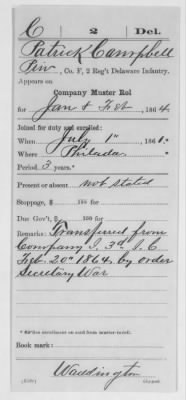 C 2 Del.
Patrick Campbell
Priv, Co. F, 2 Reg't Delaware Infantry.
Appears on
Company Muster Rol
for Jan & Feb, 1864.
Joined for duty and enrolled:
When July 1", 1861.*
Where Philada *
Period 3 years.*
Present or absent not stated
Stoppage, $ 100 for
Due Gov't, $ 100 for
Remarks: Transferred from
Company I. 3d
Feb. 20" 1864, by order
Secretary War
*See enrollment on card from muster-in roll.
Book mark:
Waddington
Copyist.